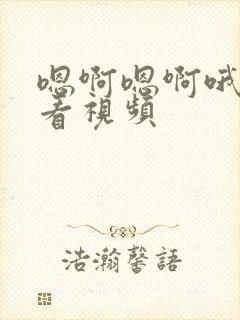 嗯啊嗯啊哦
看視頻
浩瀚馨語